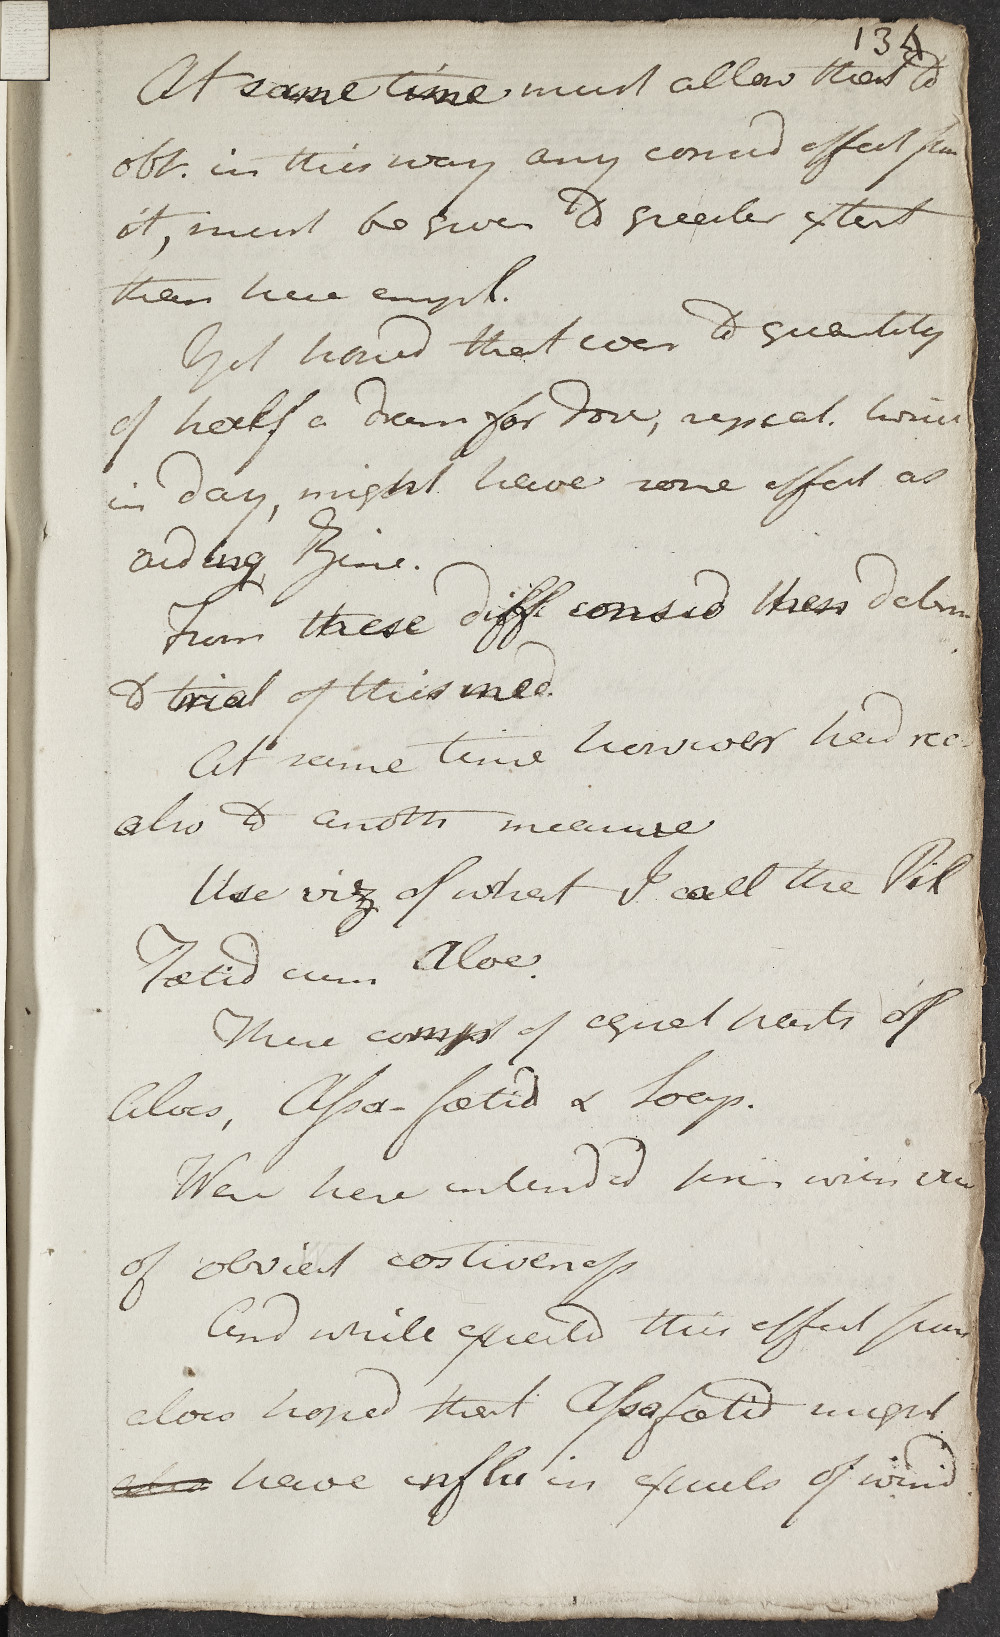 134
At same time must allow that to
obt. in this way any consid effect from
it, must be given to greater extent
than here empl.
Yet hoped that even to quantity
of half a dram for dose, repeat. twice
in day, might have some effect as
aiding
From these diff consid then determ
to trial of this med.
At same time however had rec
also to anoth measure
Use viz of what I call the Pil
Fœtid cum Aloe.
These comps of equal parts of
Aloes, Assa-fœtid & Soap.
Were here intended prin with view
of obviat costiveness
And while expected this effect from
aloes hoped that Assafœtid might
have influ in expuls of wind